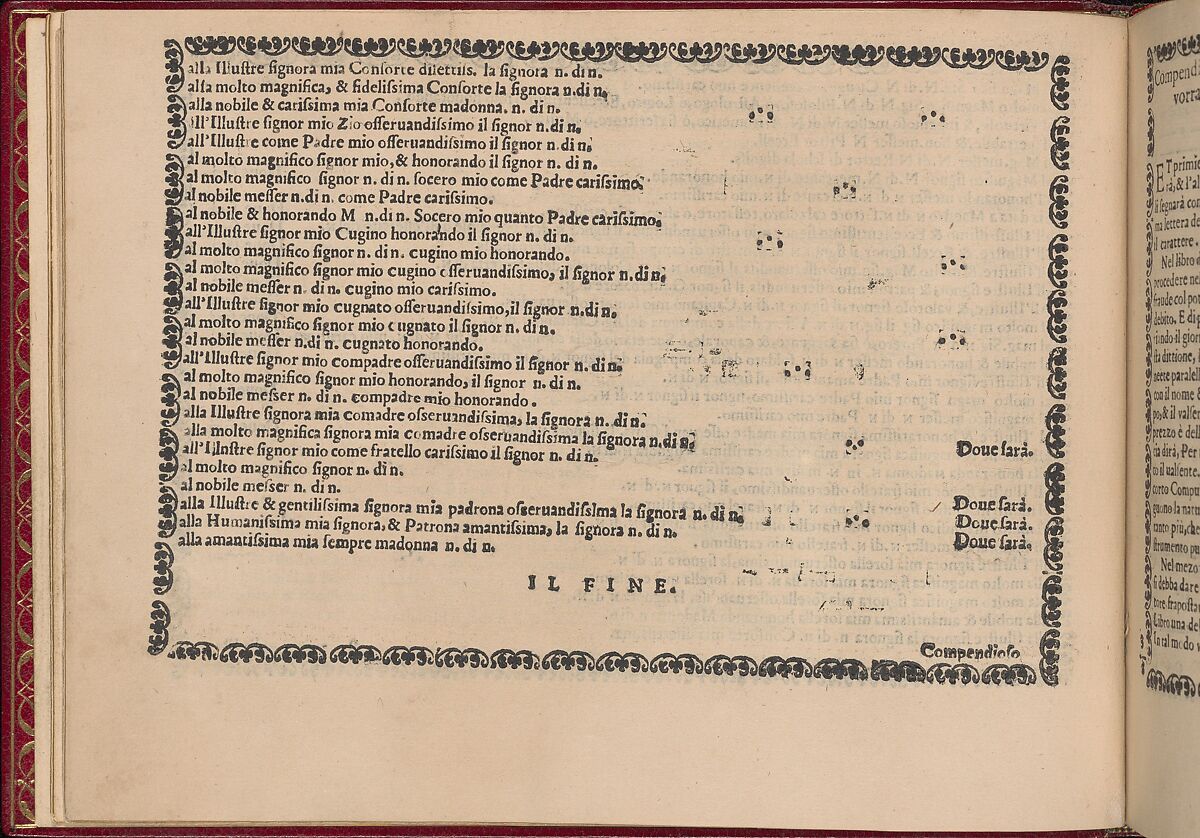 alla Illustre signora mia Consorte dilettiss. la signora n. di n.
alla molto magnifica, & fidelissima Consorte la signora n.di n.
alla nobile & carissima mia Consorte madonna. n. di n.
all'Illustre signor mio Zio osseruandissimo il signor n.di n.
all'Illustre come Padre mio osseruandissimo il signor n.di n.
al molto magnifico signor mio, & honorando il signor n. di n.
al molto magnifico signor n. di n. socero mio come Padre carissimo.
al nobile messer n.di n. come Padre carissimo.
al nobile & honorando M n.di n. Socero mio quanto Padre carissimo.
all'Illustre signor mio Cugino honorando il signor n. di n.
al molto magnifico signor n. di n. cugino mio honorando.
al molto magnifico signor mio cugino osseruandissimo, il signor n.di n.
al nobile messer n. di n. cugino mio carissimo.
all'Illustre signor mio cugnato osseruandissimo, il signor n.di n.
al molto magnifico signor mio cugnato il signor n. di n.
al nobile messer n.di n. cugnato honorando.
all'Illustre signor mio compadre osseruandissimo il signor n. di n.
al molto magnifico signor mio honorando, il signor n. di n.
al nobile messer n. di n. compadre mio honorando.
alla Illustre signora mia comadre osseruandissima, la signora n. di n.
alla molto magnifica signora mia comadre osseruandissima la signora n.di n.
all'Illnstre signor mio come fratello carissimo il signor n. di n. Doue sarà.
al molto magnifico signor n. di n.
al nobile messer n. di n.
alla Illustre & gentilissima signora mia padrona osseruandissima la signora n. di n. Doue sarà.
alla Humanissima mia signora, & Patrona amantissima, la signora n. di n. Doue sarà.
alla amantissima mia sempre madonna n. di n. Doue sarà.
IL FINE.
Compendioso
Compendi
vorra
ET primie
rà, & l'al
si segnarà con
ma lettera de
il carattere.
Nel libro
procedere ne
fraude col pot
debito. E di
tando il giorn
sta dittione,
neete paralell
con il nome
po, & il valser
prezzo è dell
sia dirà, Per
to il ualsente.
corto Comput
guono la natu
tanto più, che
strumento pu
Nel mezo
si debba dare
tore fraposta
Libro una del
sa tal modo v